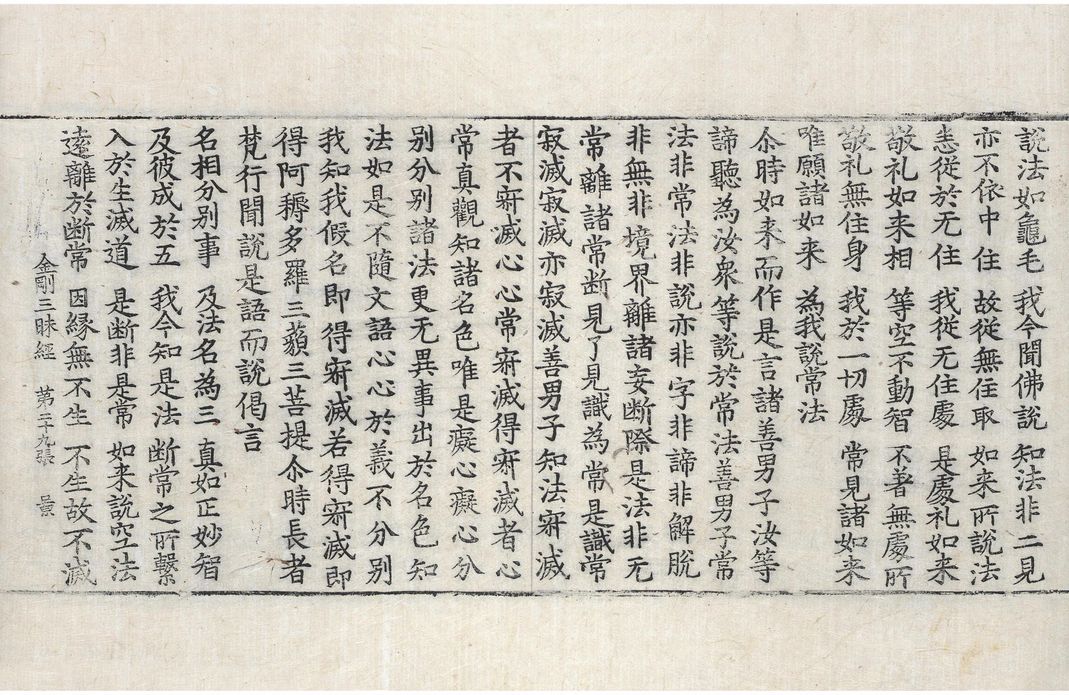 說法如龜毛 我今聞佛說 知法非二見
亦不依中住 故從無住取 如来所說法
悉從於无住 我從无住處 是處礼如来
敬礼如来相 等空不動智 不著無處所
敬礼無住身 我於一切處 常見諸如来
唯願諸如来 為我說常法
尒時如来而作是言諸善男子汝等
諦聽為汝衆等說於常法善男子常
法非常法非說亦非字非諦非解脫
非無非境界離諸妄断際是法非无
常離諸常断見了見識為常是識常
寂滅寂滅亦寂滅善男子知法寂滅
者不寂滅心心常寂滅得寂滅者心
常真觀知諸名色唯是癡心癡心分
別分別諸法更无異事出於名色知
法如是不隨文語心心於義不分別
我知我假名即得寂滅若得寂滅即
得阿耨多羅三藐三菩提尒時長者
梵行聞說是語而說偈言
名相分別事 及法名為三 真如正妙智
及彼成於五 我今知是法 断常之所繫
入於生滅道 是断非是常 如来說空法
遠離於断常 因縁無不生 不生故不滅
金剛三昧經 第二十九張